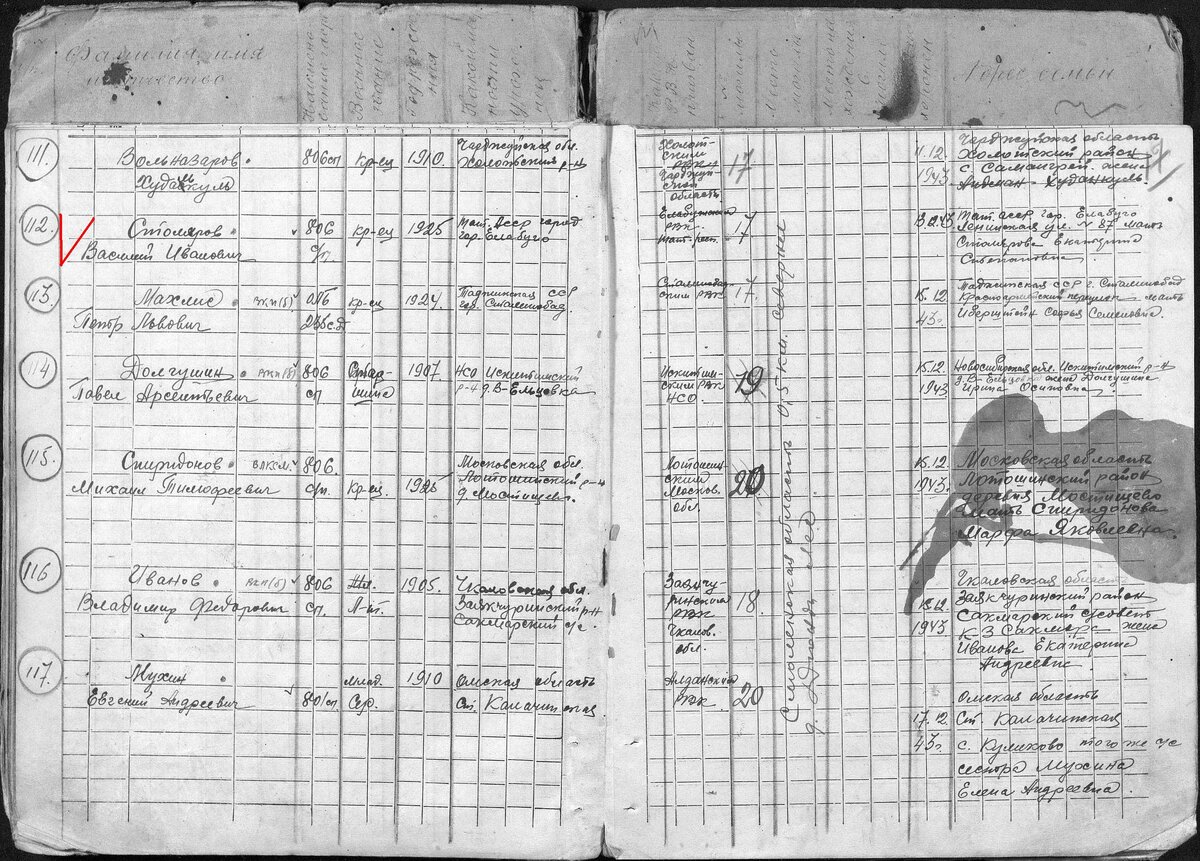 Фамилия, имя
и отчество
Воинское
звание
Год рожде
ния
Каким
РВК
призван
№
могилы
Место
Адрес семьи
111.
Вольназаров
806 сп
кр-ец
1910
Чарджуйская обл.
Холотский
РВК
Чарджуй-
ской
области
17
11.12.
1943
Чарджуйская область
Холотский район
с. жена
Худанкуль
112.
Столяров
806
кр-ец
1925
Тат. Асср город
гор. Елабуго
Василий Иванович
с/п.
Елабужский
РВК.
Тат. рес.
17
13.12.43
Тат. асср гор. Елабуго
Ленинская ул. N 87 мать
Столярова Екатерина
Степановна
113.
Махлис
ВКП(б)
кр-ец
1924
Таджикская ССР
гор. Сталинобад.
Петр Львович
Сталинобад-
ский РВК
17.
15.12.
43г.
Таджикская ССР г. Сталинобад
Красноармейский переулок мать
Софья Семеновна.
114
Долгушин
ВКП(б)
806
сп
Стар-
шина
1907.
НСО Искитимский
р-н д. В-Ельцовка
Павел Арсентьевич
Искитим-
ский РВК
НСО.
19
15.12.
1943
Новосибирская обл. Искитимский р-н
д. В-Ельцовка жена Долгушина
Ирина Осиповна
115.
Спиридонов
ВЛКСМ.
806.
Михаил Тимофеевич
с/п.
Кр-ец
1925
Московская обл.
Лотошинский р-н
д. Мостищево.
Лотошин-
ский
Москов.
обл.
20
15.12.
1943.
Московская область
Лотошинский район
деревня Мостищево
Мать Спиридонова
Марфа Яковлевна.
116
Иванов
ВКП(б)
806
сп.
Мл.
Л-т.
1905.
Чкаловская обл.
Заякчуринский р-н
Сакмарский с/с.
Владимир Федорович
Заякчу-
ринский
РВК
Чкалов.
обл.
18.
1943
Чкаловская область
Заякчуринский район
Сакмарский с/совет
к-з Сакмара жена
Иванова Екатерина
Андреевна.
117.
Мухин
млад.
Сер.
1910
Омская область
ст. Калачинская
Евгений Андреевич
801 сп.
Алданский
РВК
20
17.12
43г.
Омская область
ст. Калачинская
с. Куликово того же с/с
сестра Мухина
Елена Андреевна.
Смоленская область 0,5 км.
д.